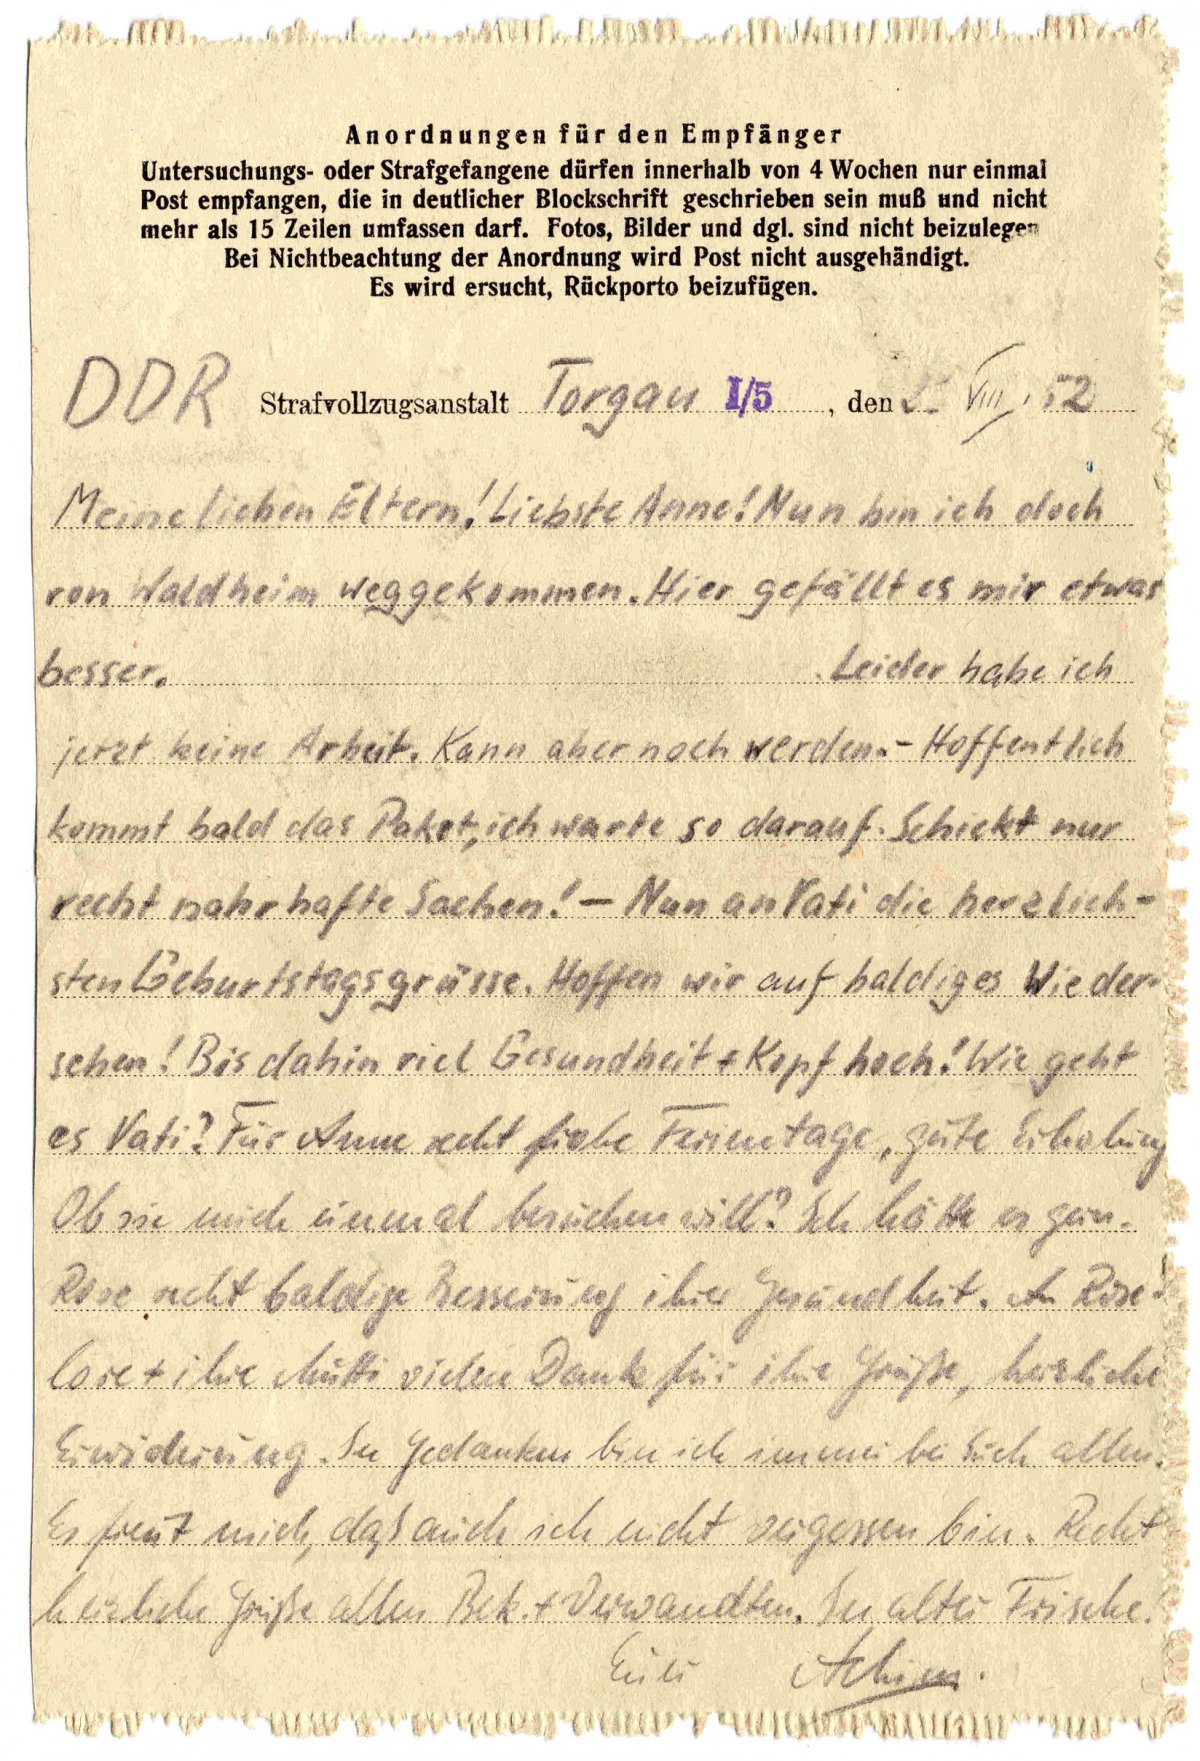 Anordnungen für den Empfänger
Untersuchungs- oder Strafgefangene dürfen innerhalb von 4 Wochen nur einmal
Post empfangen, die in deutlicher Blockschrift geschrieben sein muß und nicht
mehr als 15 Zeilen umfassen darf. Fotos, Bilder und dgl. sind nicht beizulegen
Bei Nichtbeachtung der Anordnung wird Post nicht ausgehändigt.
Es wird ersucht, Rückporto beizufügen.
DDR Strafvollzugsanstalt Torgau I/5, den VIII. 52
Meine lieben Eltern! Liebste Anne! Nun bin ich doch
von Waldheim weggekommen. Hier gefällt es mir etwas
besser. Leider habe ich
jetzt keine Arbeit. Kann aber noch werden. – Hoffentlich
kommt bald das Paket, ich warte so darauf. Schickt nur
recht nahrhafte Sachen! – Nun an Vati die herzlich-
sten Geburtstagsgrüsse. Hoffen wir auf baldiges Wieder-
sehen! Bis dahin viel Gesundheit + Kopf hoch! Wie geht
es Vati? Für Anne recht frohe Ferientage, gute Erholung
Ob sie mich einmal besuchen will? Ich hätte es gern.
Rose recht baldige Besserung ihrer Gesundheit. An Rose-
lore + ihre Mutti vielen Dank für ihre Grüße, herzliche
Erwiderung. In Gedanken bin ich immer bei Euch allen.
Es freut mich, daß auch ich nicht vergessen bin. Recht
herzliche Grüße allen Bek. + Verwandten. In alter Frische!
Euer Achim.